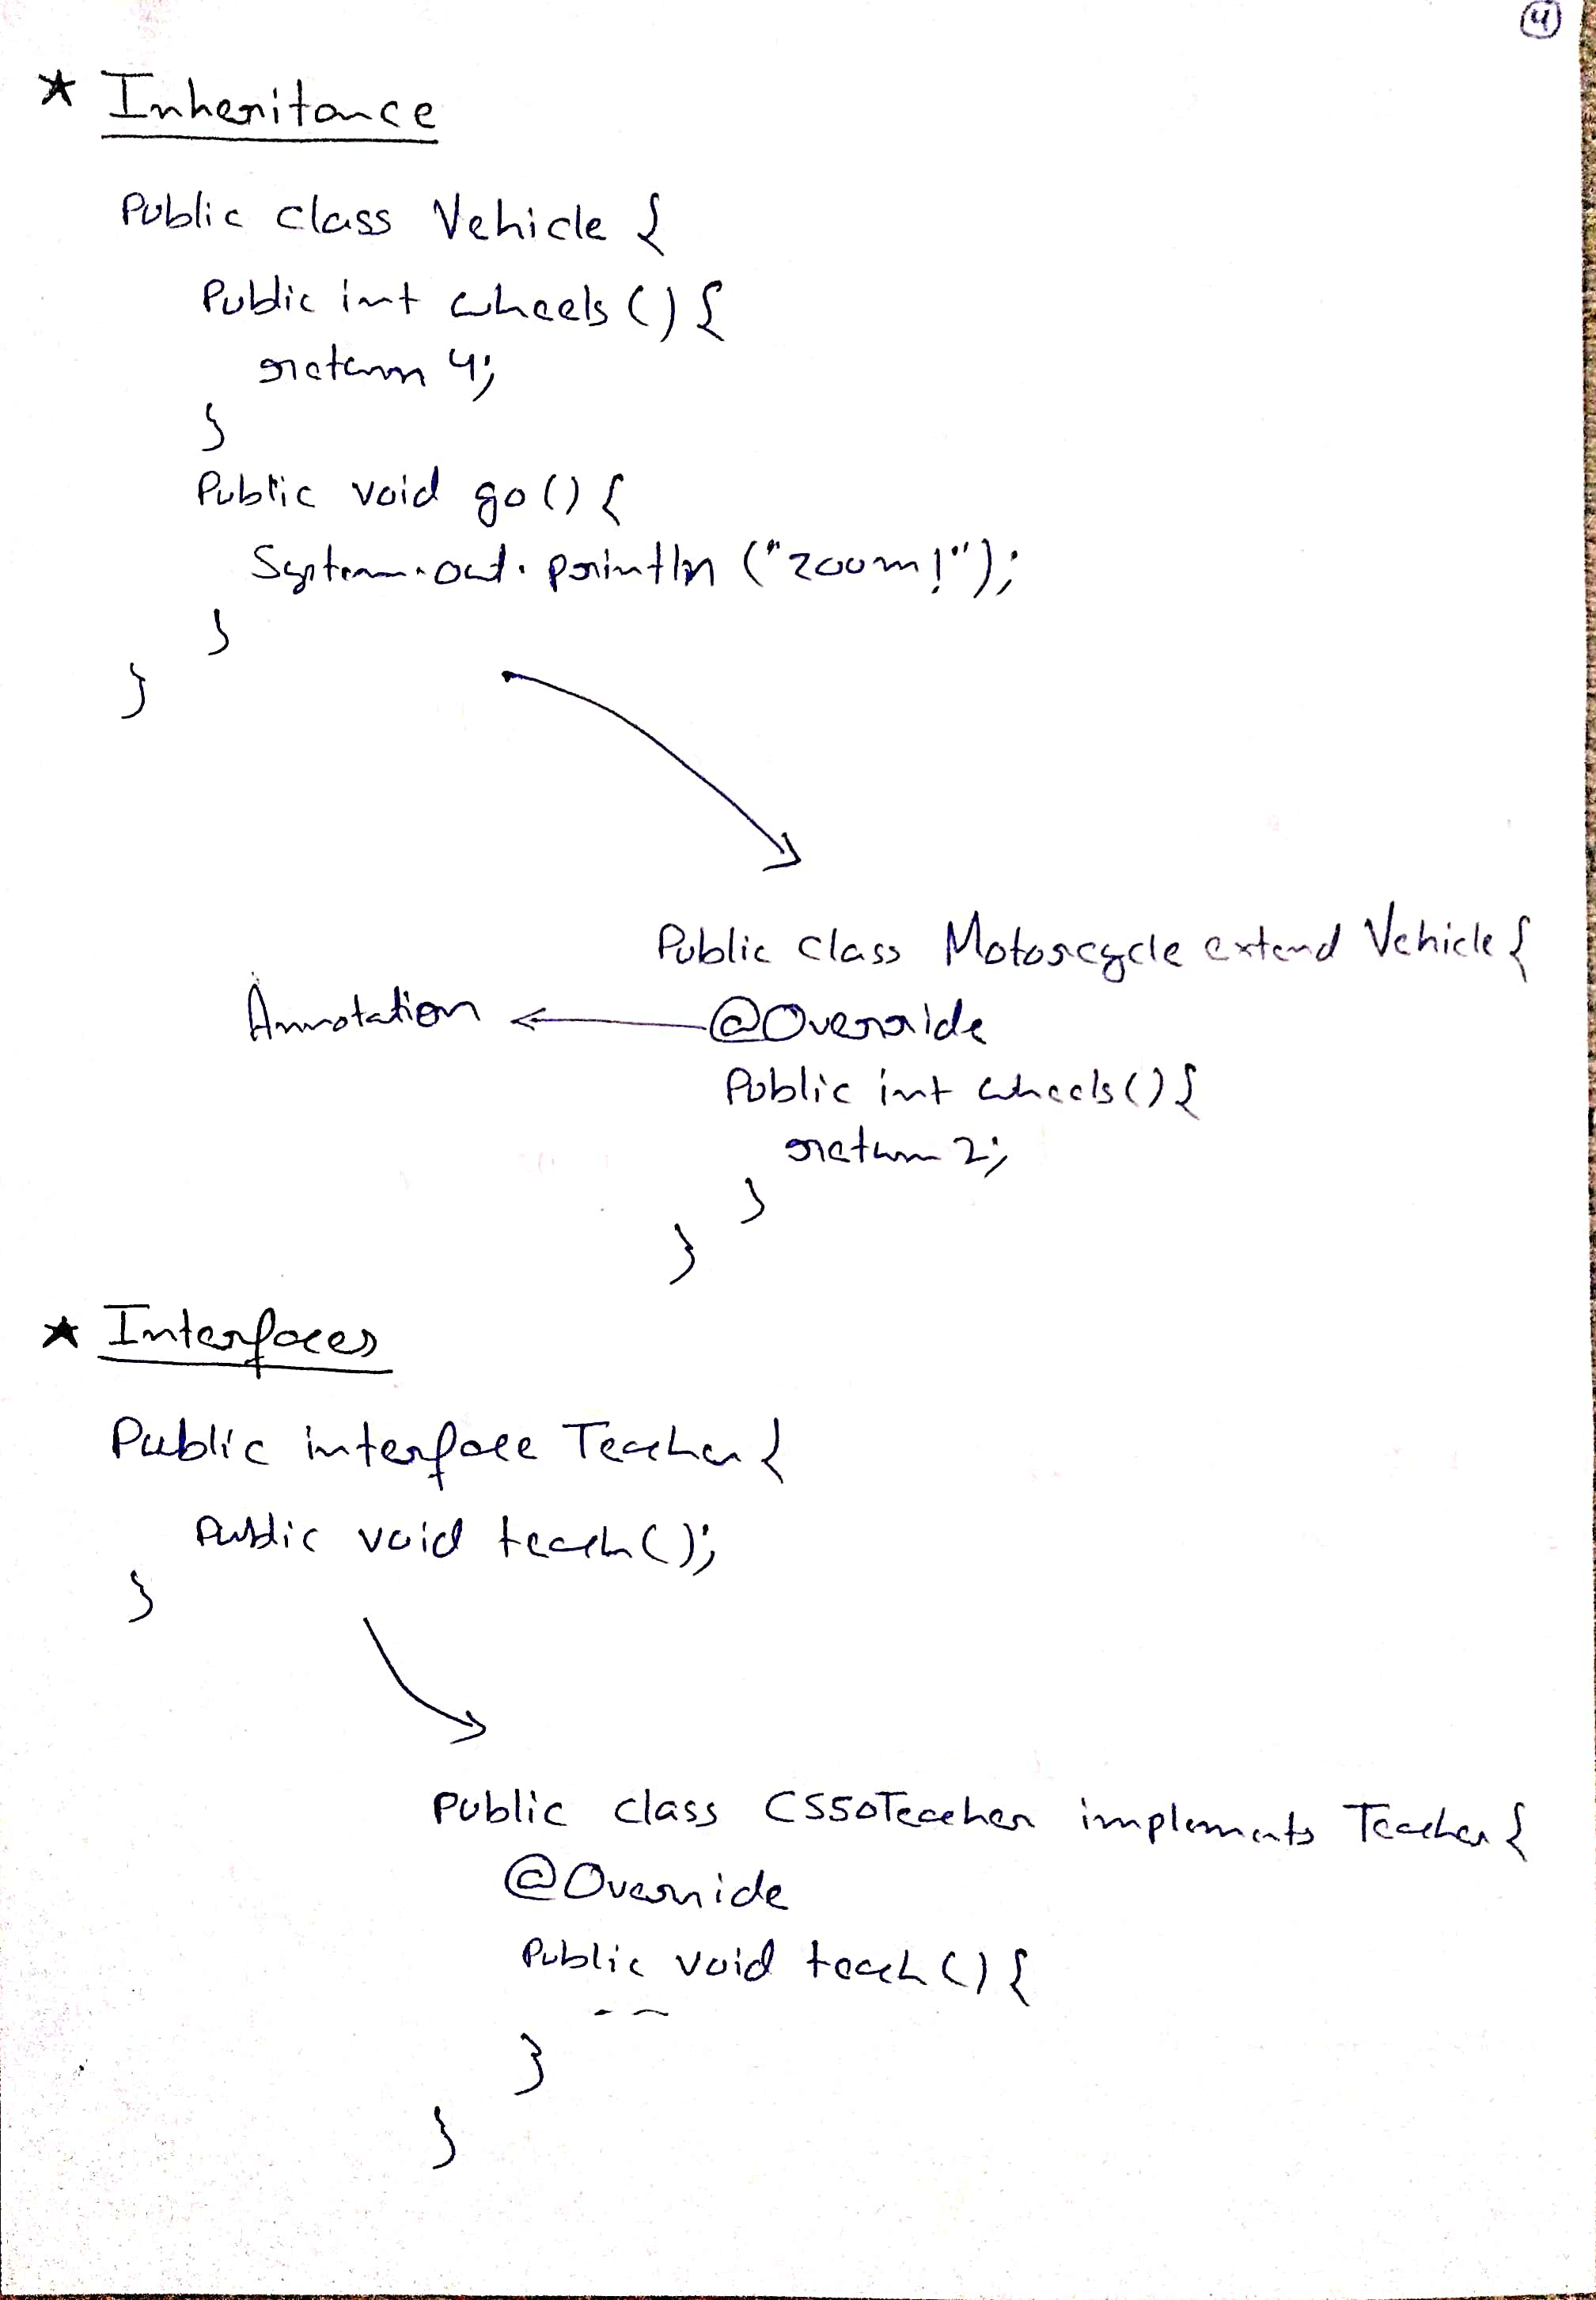 4
* Inheritance
Public class Vehicle {
Public int wheels () {
return 4;
}
Public void go () {
System.out.println ("zoom!");
}
}
Public class Motorcycle extend Vehicle {
Annotation ← @Override
Public int wheels () {
return 2;
}
}
* Interfaces
Public interface Teacher {
Public void teach ();
}
Public class CS50Teacher implements Teacher {
@Override
Public void teach () {
- -
}
}